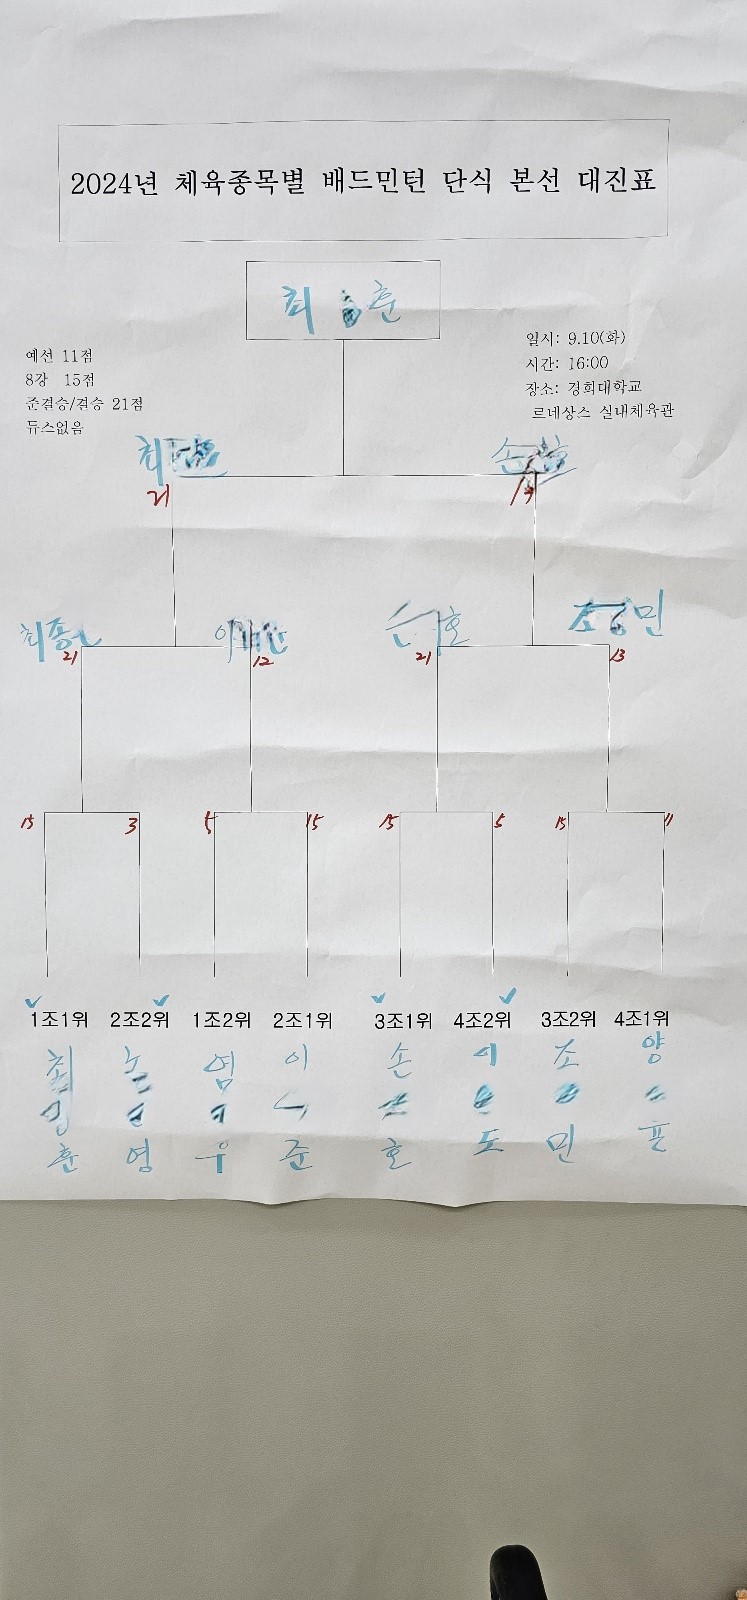 2024년 체육종목별 배드민턴 단식 본선 대진표
최 훈
예선 11점
8강 15점
준결승/결승 21점
듀스없음
일시: 9.10(화)
시간: 16:00
장소: 경희대학교
르네상스 실내체육관
최 손 호
21
최종 이 호 조 민
21 12 21 13
15 3 5 15 15 5 15 11
1조1위 2조2위 1조2위 2조1위 3조1위 4조2위 3조2위 4조1위
최 염 이 손 이 조 양
훈 영 우 준 호 도 민